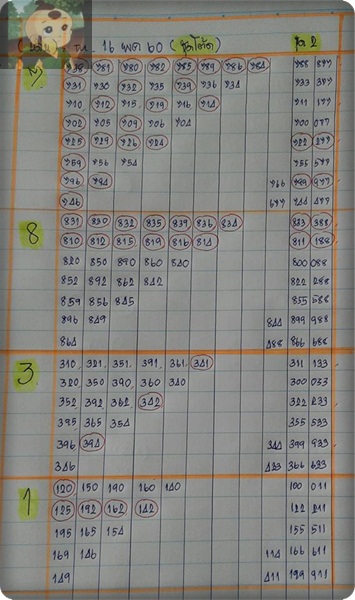 16 พค 60
738 781 780 782 785 789 786 784 788 877
7
731 730 732 735 739 736 734 733 377
710 712 715 719 716 714 711 177
702 705 709 706 704 700 077
725 729 726 724 722 277
759 756 754 755 577
796 794 766 799 977
746 677 744 477
8
831 830 832 835 839 836 834 833 388
810 812 815 819 816 814 811 188
820 850 890 860 840 800 088
852 892 862 842 822 288
859 856 845 855 588
896 849 844 899 988
864 488 866 688
3.
310 321 351 391 361 341 311 133
320 350 390 360 340 300 033
352 392 362 342 322 233
395 365 354 355 533
396 394 344 399 933
346 433 366 633
1
120 150 190 160 140 100 011
125 192 162 142 122 211
195 165 154 155 511
169 146 114 166 611
149 411 199 911